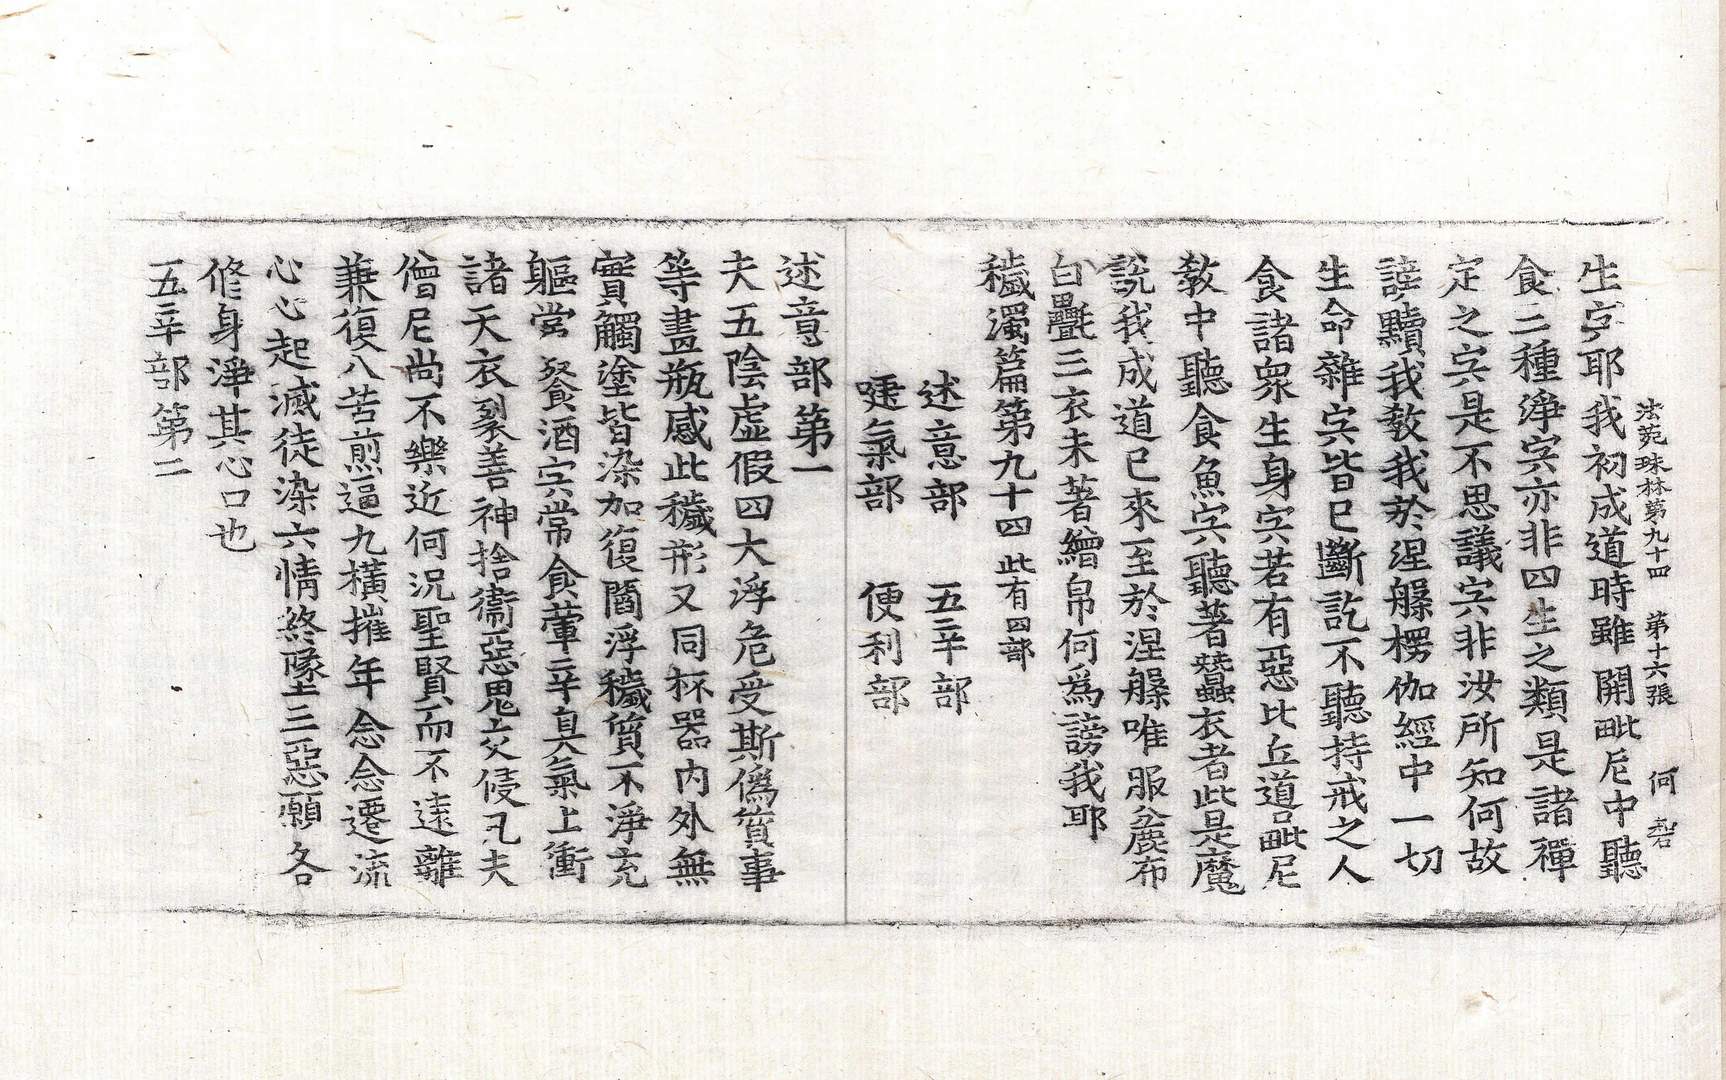 法苑珠林第九十四　第十六張　何㪽
生宍耶我初成道時雖開毗尼中聽
食三種淨宍亦非四生之類是諸禪
定之宍是不思議宍非汝所知何故
謗黷我教我於涅槃楞伽經中一切
生命雜宍皆已斷訖不聽持戒之人
食諸衆生身宍若有惡比丘道毗尼
教中聽食魚宍聽著蠶衣者此是魔
說我成道已來至於涅槃唯服麁布
白㲲三衣未著繒帛何爲謗我耶
穢濁篇第九十四此有四部
述意部　五辛部
㖷氣部　便利部
述意部第一
夫五陰虛假四大浮危受斯僞質事
等畫瓶感此穢形又同杯器內外無
實觸塗皆染加復閻浮穢質不淨充
軀常餐酒宍常食葷辛臭氣上衝
諸天衣裂善神捨衞惡鬼交侵凡夫
僧尼尚不樂近何況聖賢而不遠離
兼復八苦煎逼九橫摧年念念遷流
心心起滅徒染六情終墜三惡願各
修身淨其心口也
五辛部第二